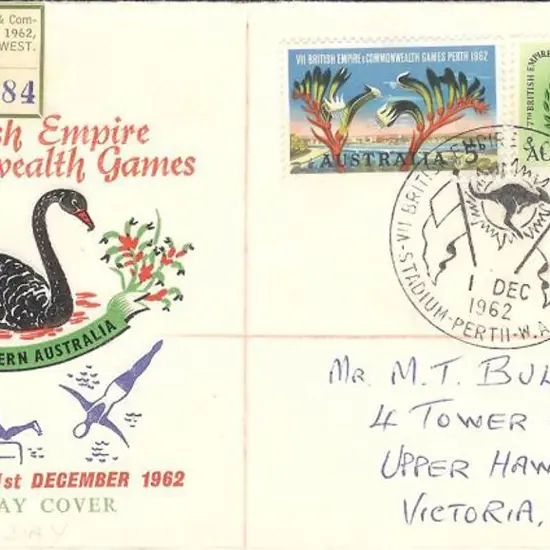 & Com-
1962,
WEST.
84
sh Empire
wealth Games
ERN AUSTRALIA
1st DECEMBER 1962
AY COVER
VII BRITISH EMPIRE & COMMONWEALTH GAMES PERTH 1962
AUSTRALIA 5D
7TH BRITISH EMPIRE
S-VII BRITISH
1 DEC
1962
STADIUM-PERTH-W.A
MR. M.T. BUL
4 TOWER
UPPER HAW
VICTORIA,